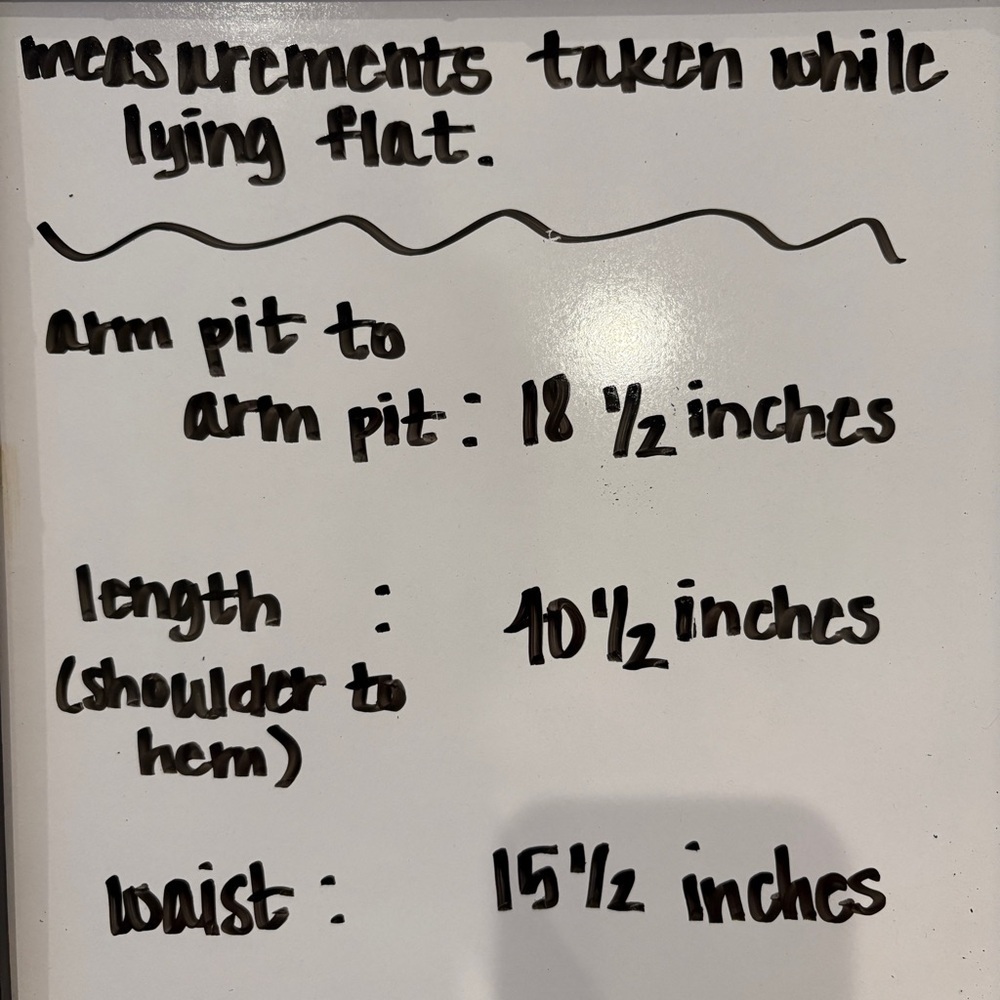 measurements taken while
lying flat.
arm pit to
arm pit: 18 1/2 inches
length : 40 1/2 inches
(shoulder to
hem)
waist: 15 1/2 inches